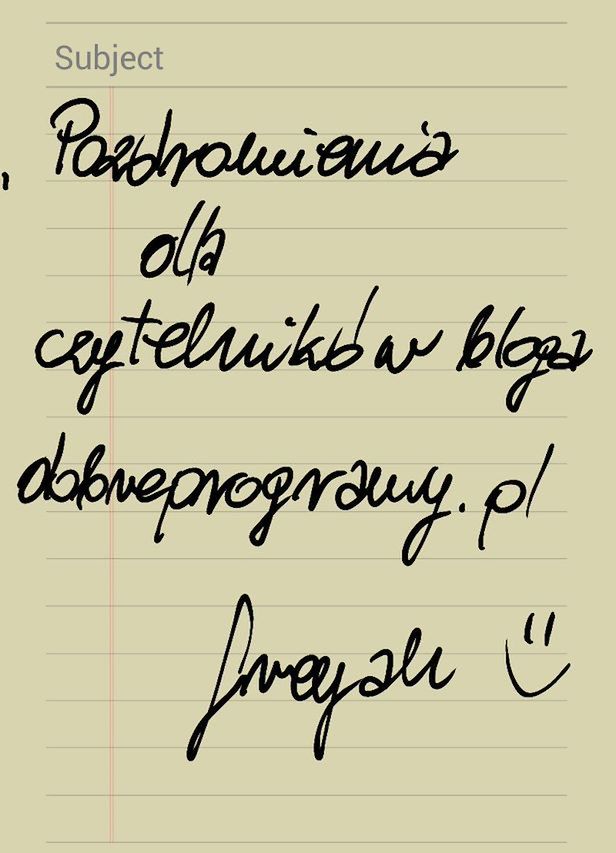 Subject
Pozdrowienia
dla
czytelników bloga
dobreprogramy.pl